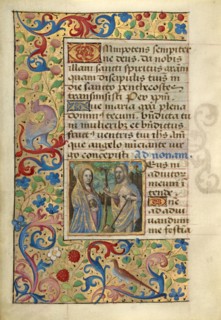 Omnipotens sempiter
ne deus da nobis
illam sancti spiritus gratiam
quam discipulis tuis in
die sancto penthecostes
transmisisti Per xpm
Aue maria gracia plena
dominus tecum benedicta tu
in mulieribus et benedictus
fructus ventris tui
que angelo nunciante
concepisti Ad nonam
Deus in
adiutori
meum in
tende
Domine
ad adiu
uandum
me festina